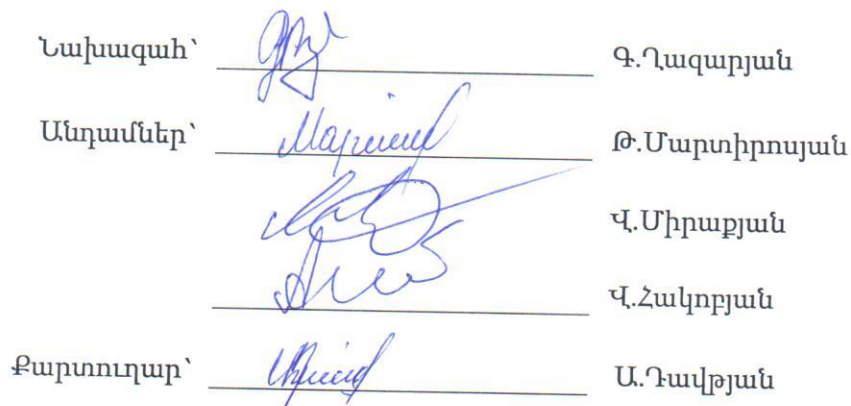 Նախագահ՝ Գ.Ղազարյան
Անդամներ՝ Թ.Մարտիրոսյան
Վ.Միրաքյան
Վ.Հակոբյան
Քարտուղար՝ Ա.Դավթյան